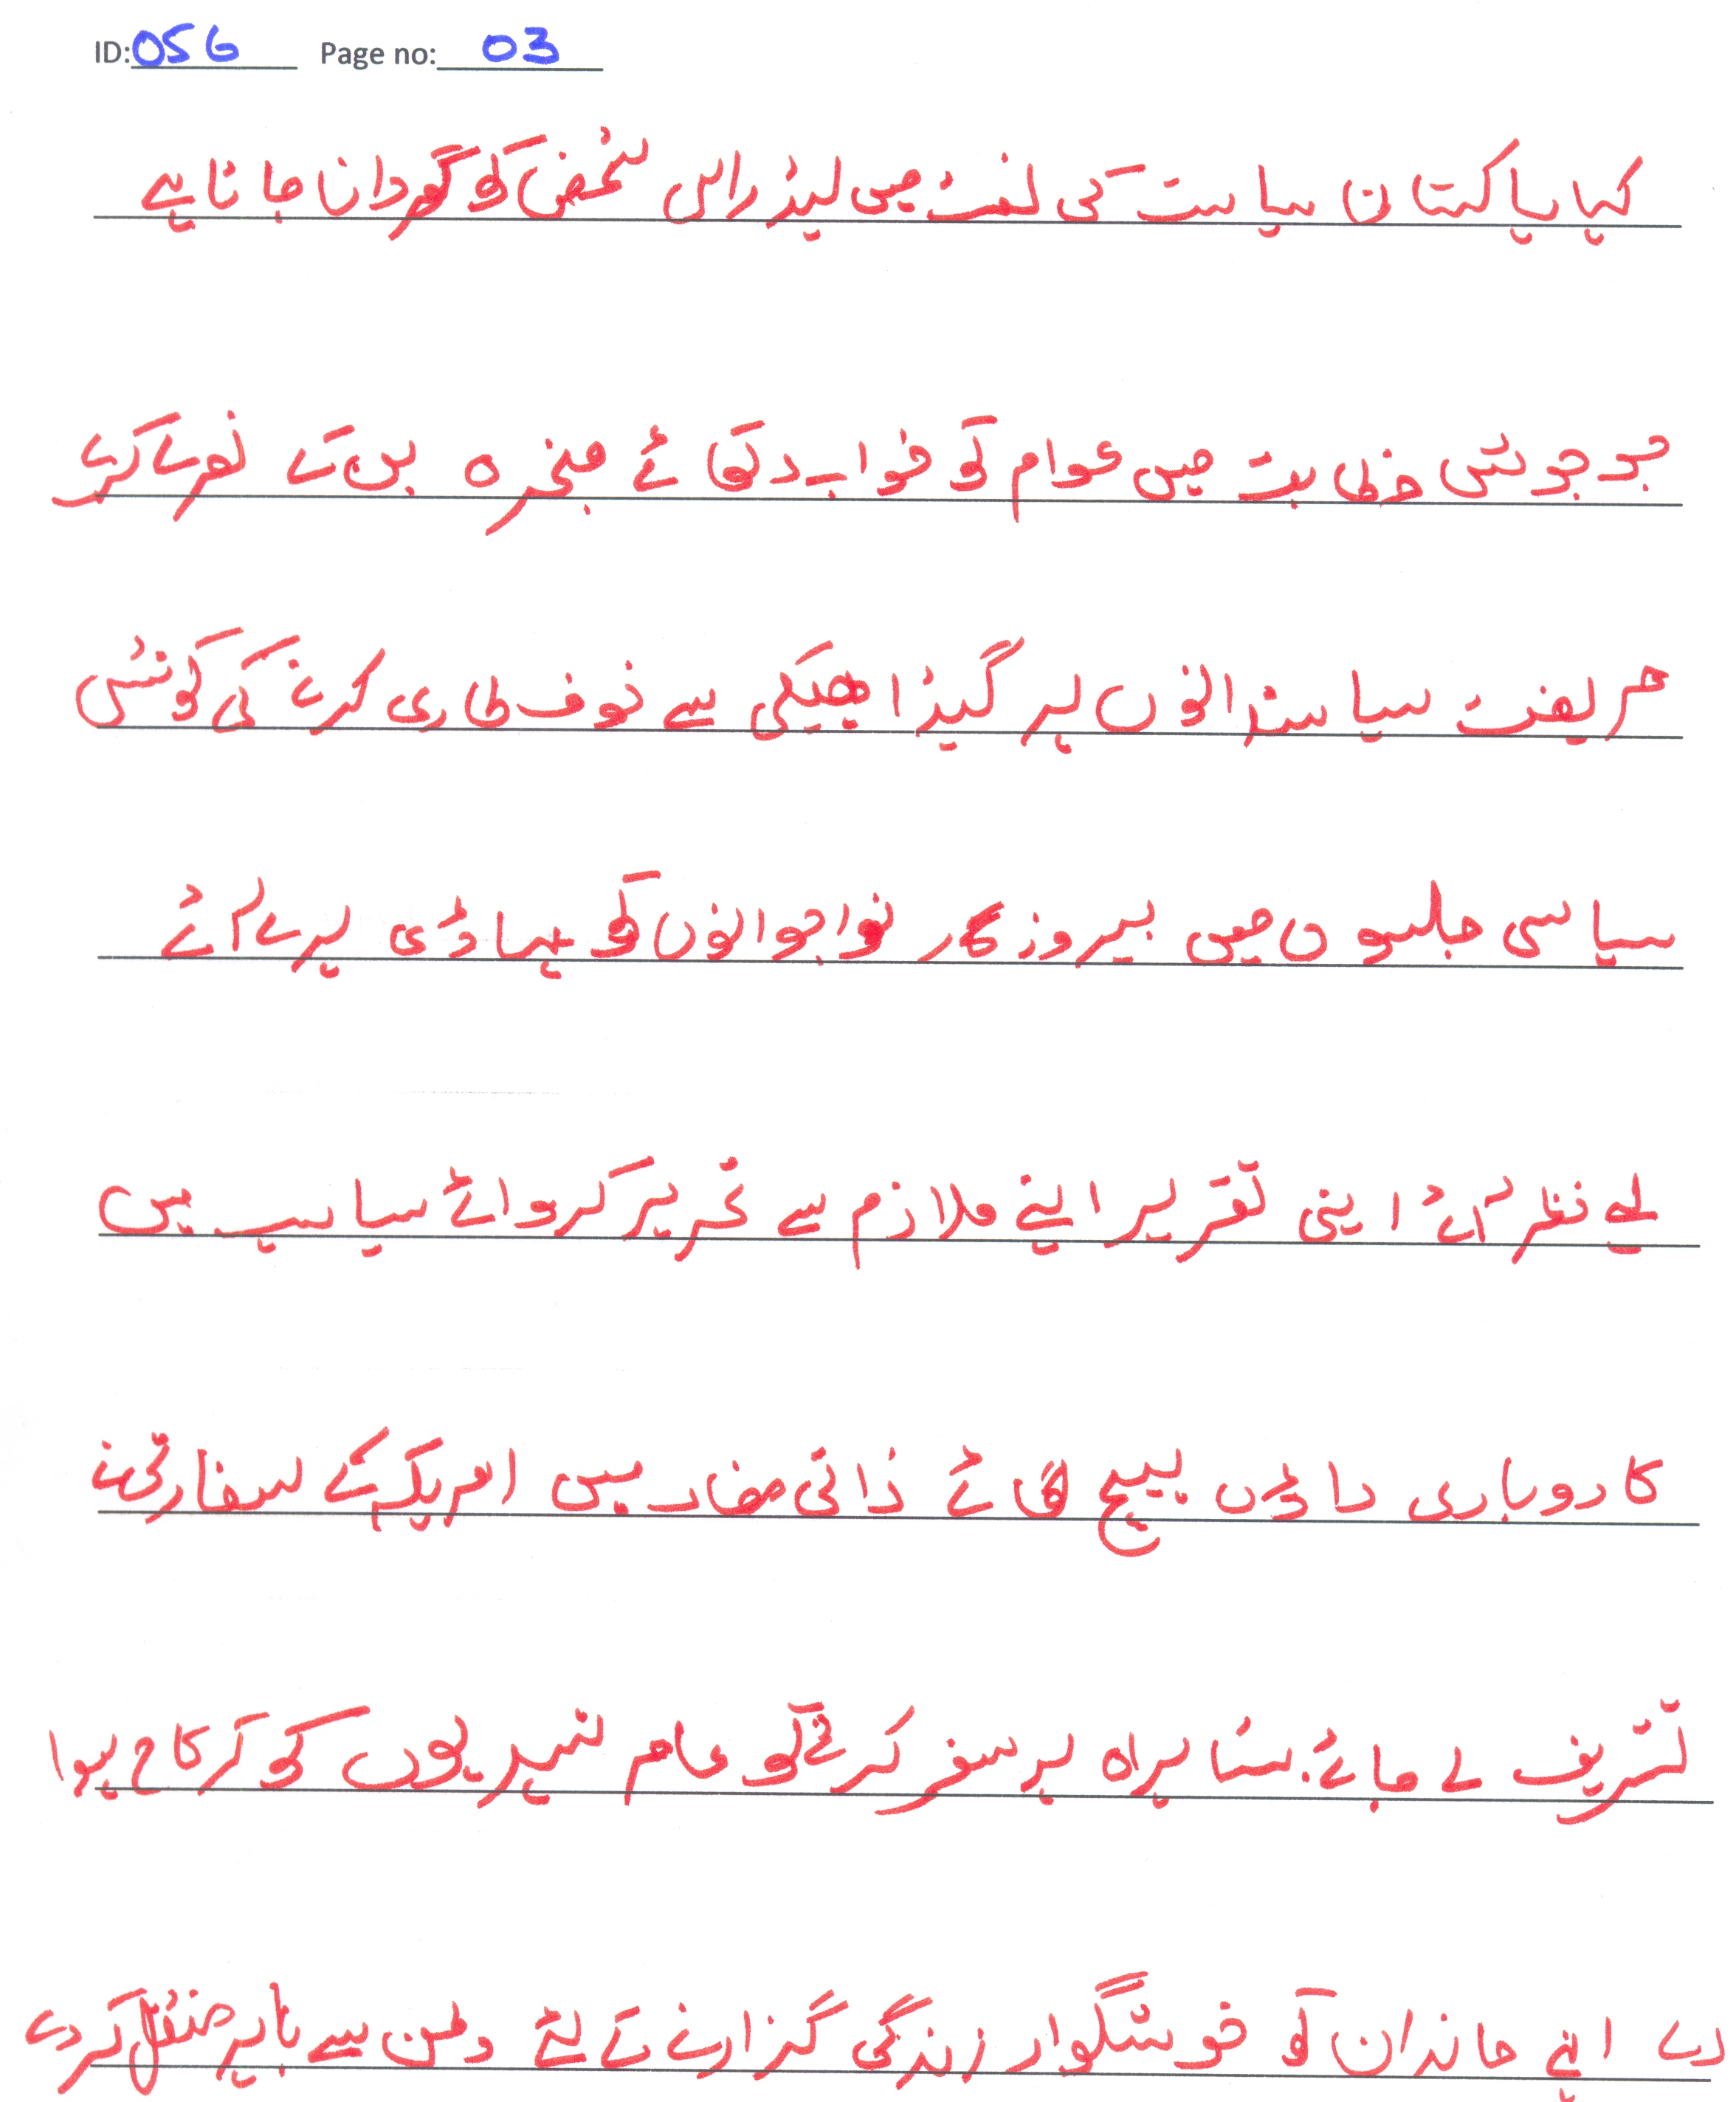 ID: 056 Page no: 03
کیا پاکستان سیاست کی لغت میں لیڈر اس شخص کو گردانا جاتا ہے
جو جوشی خطابت میں عوام کو خواب دکھائے وغیرہ بن کے نعرے کرے
حریف سیاستدانوں پر گیڈا بھبکی سے خوف طاری کرنے کی کوشش
سیاسی جلسوں میں بیروزگار نواجوانوں کو پہاڑی پر لے آئے
لیے نظر آئے اپنی تقریر اپنے ملازم سے تحریر کروائے سیاسیب میں
کاروباری داؤں پیچ لگائے ذاتی مفاد میں امریکہ کے سفارتخانے
تشریف لے جائے. شاہراہ پر سفر کرتے کو عام شہریوں کو کر کاٹ ہوا
دے اپنے خاندان کو خوشگوار زندگی گزارنے کے لئے وطن سے باہر منتقل کر دے